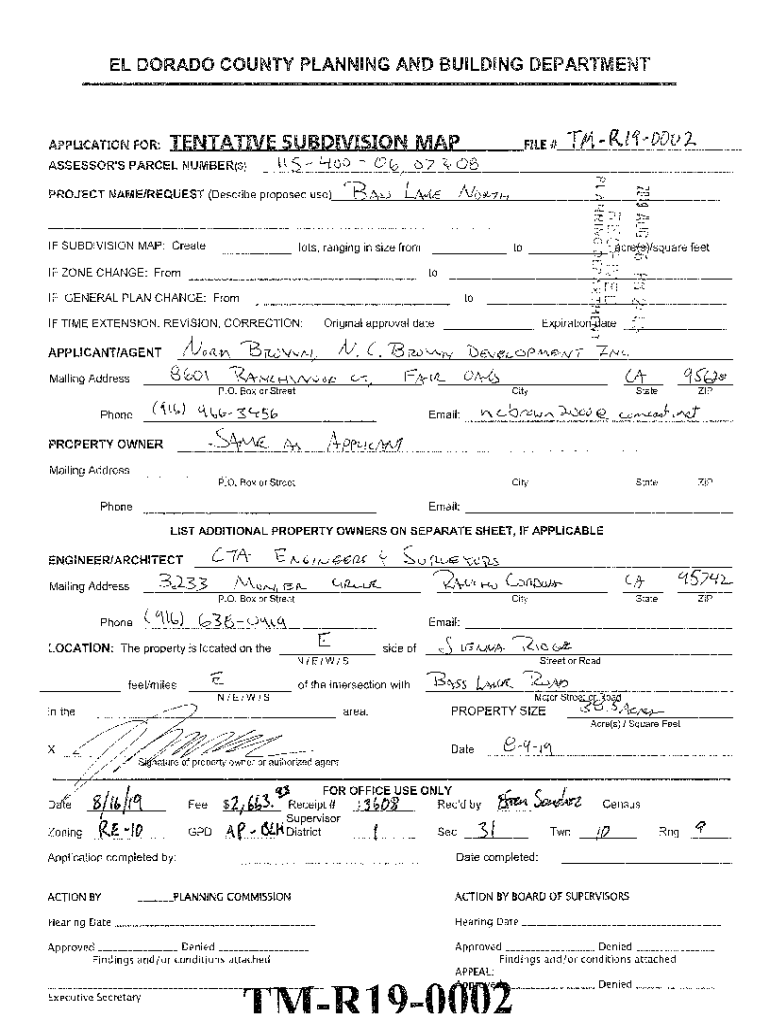 EL DORADO COUNTY PLANNING AND BUILDING DEPARTMENT
APPLICATION FOR: TENTATIVE SUBDIVISION MAP FILE # TM-R19-0002
ASSESSOR'S PARCEL NUMBER(S) 115-400-06, 07 & 08
PROJECT NAME/REQUEST (Describe proposed use) Bass Lake North
PLANNING DEPARTMENT
IF SUBDIVISION MAP: Create lots, ranging in size from to acre(s)/square feet
IF ZONE CHANGE: From to
IF GENERAL PLAN CHANGE: From to
IF TIME EXTENSION, REVISION, CORRECTION: Original approval date Expiration date
APPLICANT/AGENT Norm Brown, N.C. Brown Development Inc.
Mailing Address 8601 Ranchwood Ct, Fair Oaks CA 95628
P.O. Box or Street City State ZIP
Phone (916) 966-3456 Email: ncbrown2000@comcast.net
PROPERTY OWNER Same as Applicant
Mailing Address
P.O. Box or Street City State ZIP
Phone Email:
LIST ADDITIONAL PROPERTY OWNERS ON SEPARATE SHEET, IF APPLICABLE
ENGINEER/ARCHITECT CTA Engineers & Surveyors
Mailing Address 3233 Monier Circle Rancho Cordova CA 95742
P.O. Box or Street City State ZIP
Phone (916) 638-0919 Email:
LOCATION: The property is located on the E side of Sienna Ridge
N / E / W / S Street or Road
feet/miles E of the intersection with Bass Lake Road
N / E / W / S Major Street or Road
in the area. PROPERTY SIZE 38.5 Acres
Acre(s) / Square Feet
X Date 8-9-19
Signature of property owner or authorized agent
FOR OFFICE USE ONLY
Date 8/16/19 Fee $2,663.98 Receipt # 13608 Rec'd by Census
Zoning RE-10 GPD AP-BLH Supervisor District 1 Sec 31 Twn 10 Rng 9
Application completed by: Date completed:
ACTION BY PLANNING COMMISSION ACTION BY BOARD OF SUPERVISORS
Hearing Date Hearing Date
Approved Denied Approved Denied
Findings and/or conditions attached Findings and/or conditions attached
APPEAL:
Approved Denied
Executive Secretary
TM-R19-0002